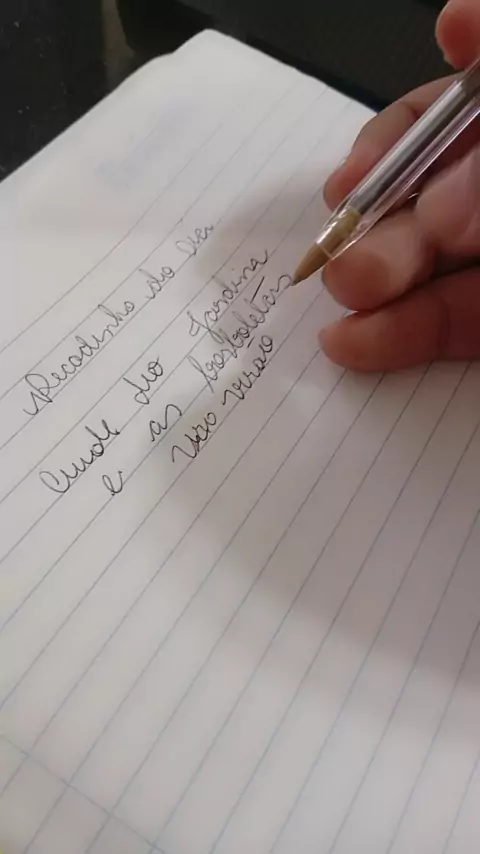 Recadinho do dia
Cuide do Jardim
e as borboletas
vão virão